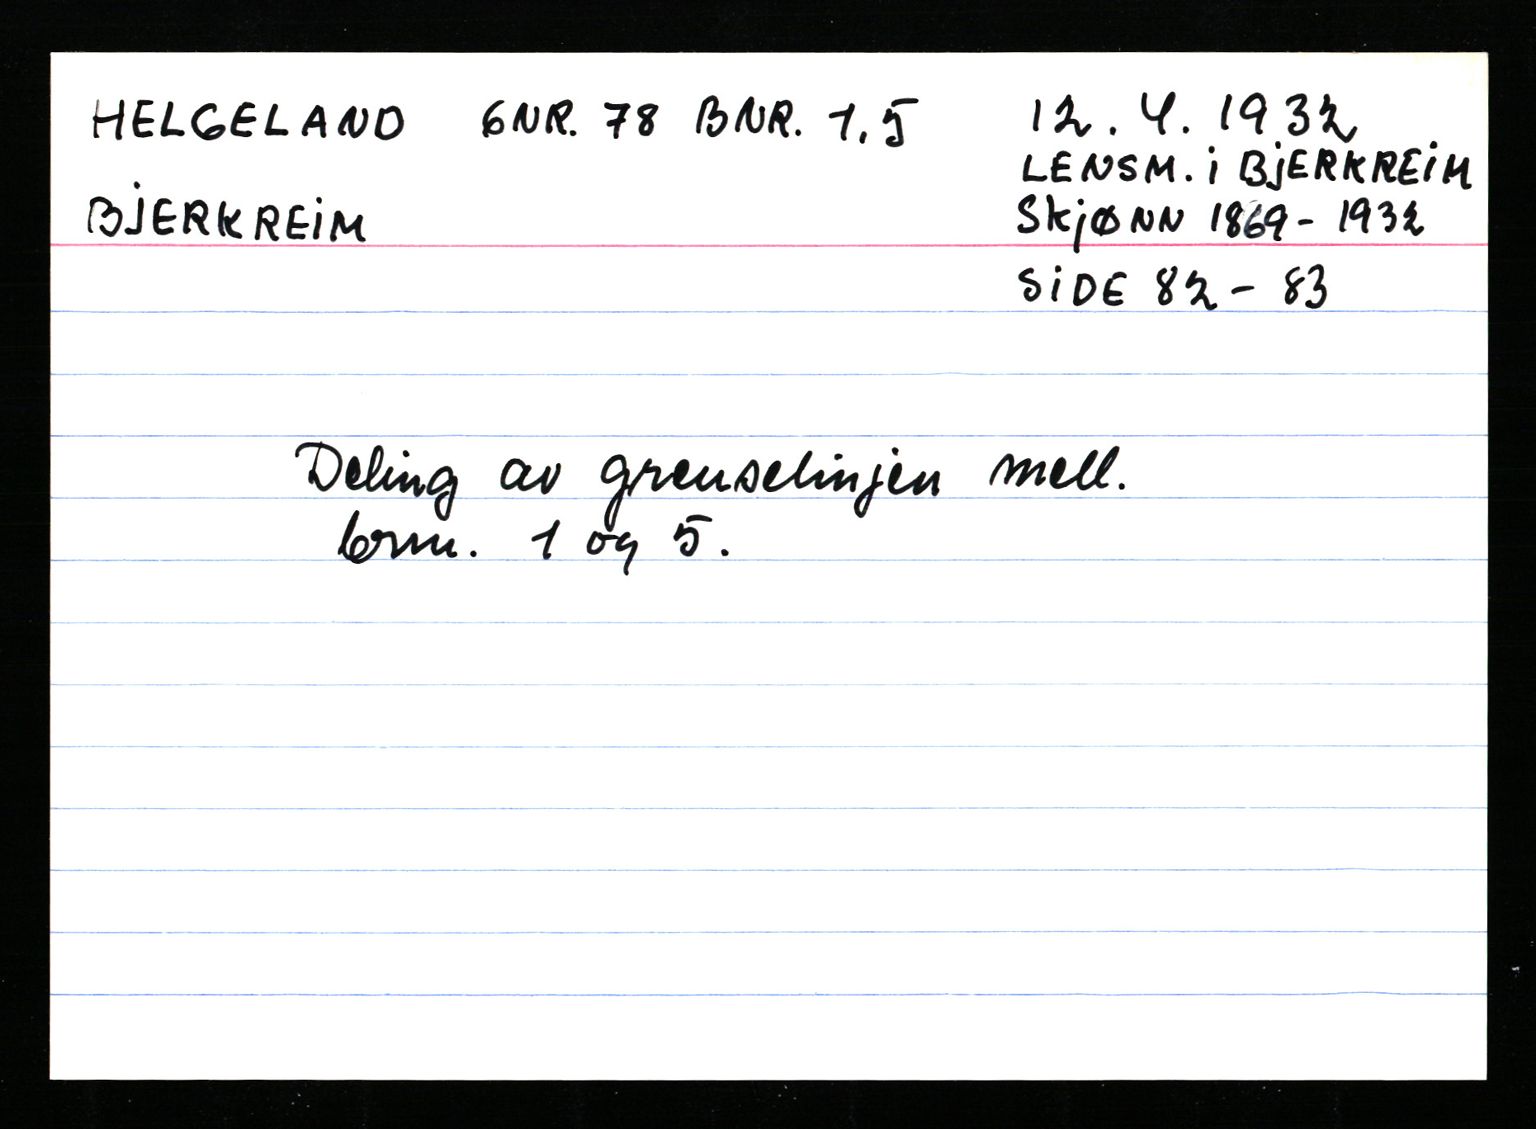 HELGELAND GNR. 78 BNR. 1,5
BJERKREIM
12.4.1932
LENSM. i BJERKREIM
SKJØNN 1869-1932
SIDE 82-83
Deling av grenselinjen mell.
brnr. 1 og 5.